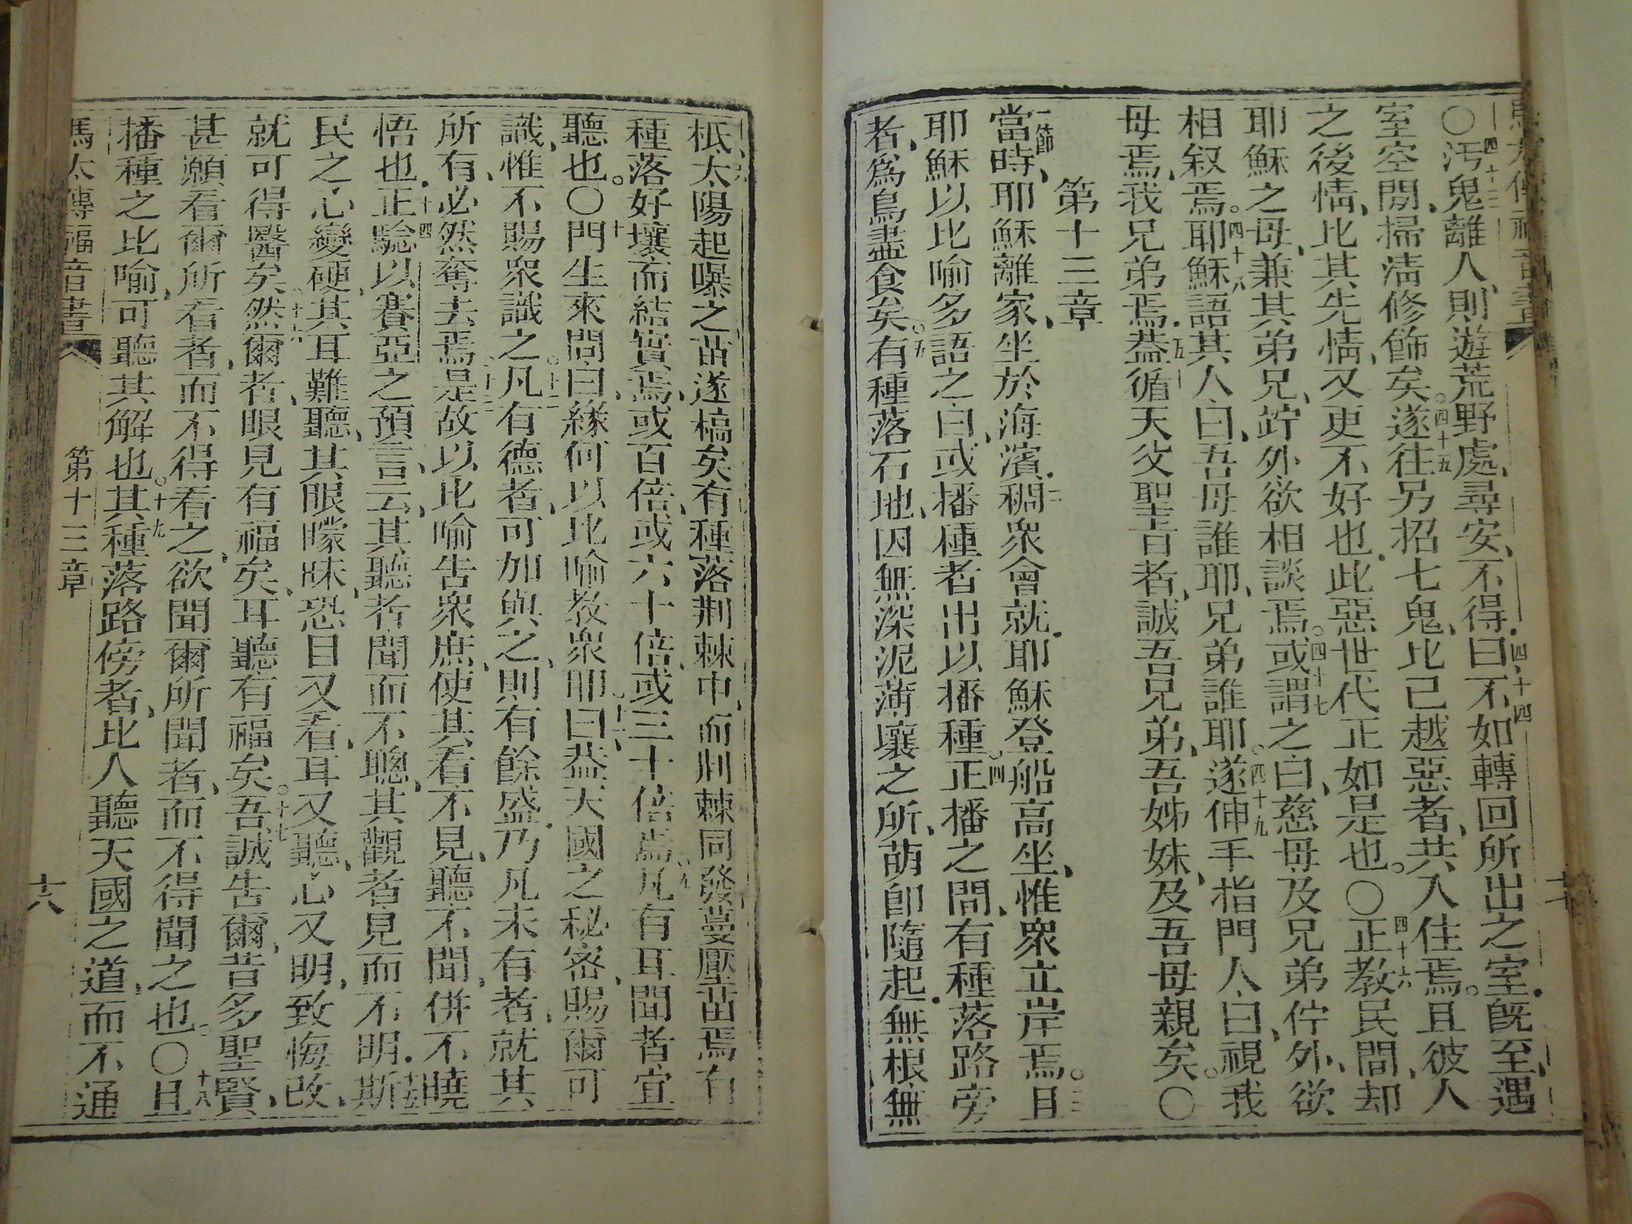 馬太傳福音書
○汚鬼離人、則遊荒野處、尋安、不得.四十四曰不如轉回所出之室.旣至、遇
室空閒、掃淸修飾矣。四十五遂往另招七鬼、比已越惡者、共入住焉。且彼人
之後情、比其先情、又更不好也.此惡世代正如是也。○四十六正敎民間、却
耶穌之母、兼其弟兄、竚外欲相談焉。四十七或謂之曰、慈母及兄弟佇外、欲
相叙焉。四十八耶穌語其人曰、吾母誰耶、兄弟誰耶。四十九遂伸手指門人、曰、視我
母焉、我兄弟焉.五十葢循天父聖旨者、誠吾兄弟、吾姊妹、及吾母親矣。○
第十三章
一節當時、耶穌離家、坐於海濱.二稠衆會就.耶穌登船高坐、惟衆立岸焉。三且
耶穌以比喻多語之、曰、或播種者出以播種。四正播之間、有種落路旁
者、爲鳥盡食矣。五有種落石地、因無深泥薄壤之所、萌卽隨起.無根無
柢、六太陽起曝之、苗遂槁矣、有種落荆棘中、而荆棘同發蔓壓苗焉、有
種落好壤而結實焉、或百倍、或六十倍、或三十倍焉。九凡有耳聞者、宜
聽也。○十門生來問曰、緣何以比喻敎衆。十一卽曰、葢天國之秘密、賜爾可
識、惟不賜衆識之。十二凡有德者、可加與之、則有餘盛.乃凡未有者、就其
所有、必然奪去焉、十三是故以比喻告衆庶、使其看不見、聽不聞、併不曉
悟也.十四正驗以賽亞之預言、云、其聽者聞而不聰、其觀者見而不明.十五斯
民之心變硬、其耳難聽、其眼矇昧、恐目又看、耳又聽、心又明、致悔改、
就可得醫矣。十六然爾者、眼見有福矣、耳聽有福矣。十七吾誠告爾、昔多聖賢、
甚願看爾所看者、而不得看之、欲聞爾所聞者、而不得聞之也。○十八且
播種之比喻、可聽其解也。十九其種落路傍者、比人聽天國之道、而不通
馬太傳福音書
第十三章
十八